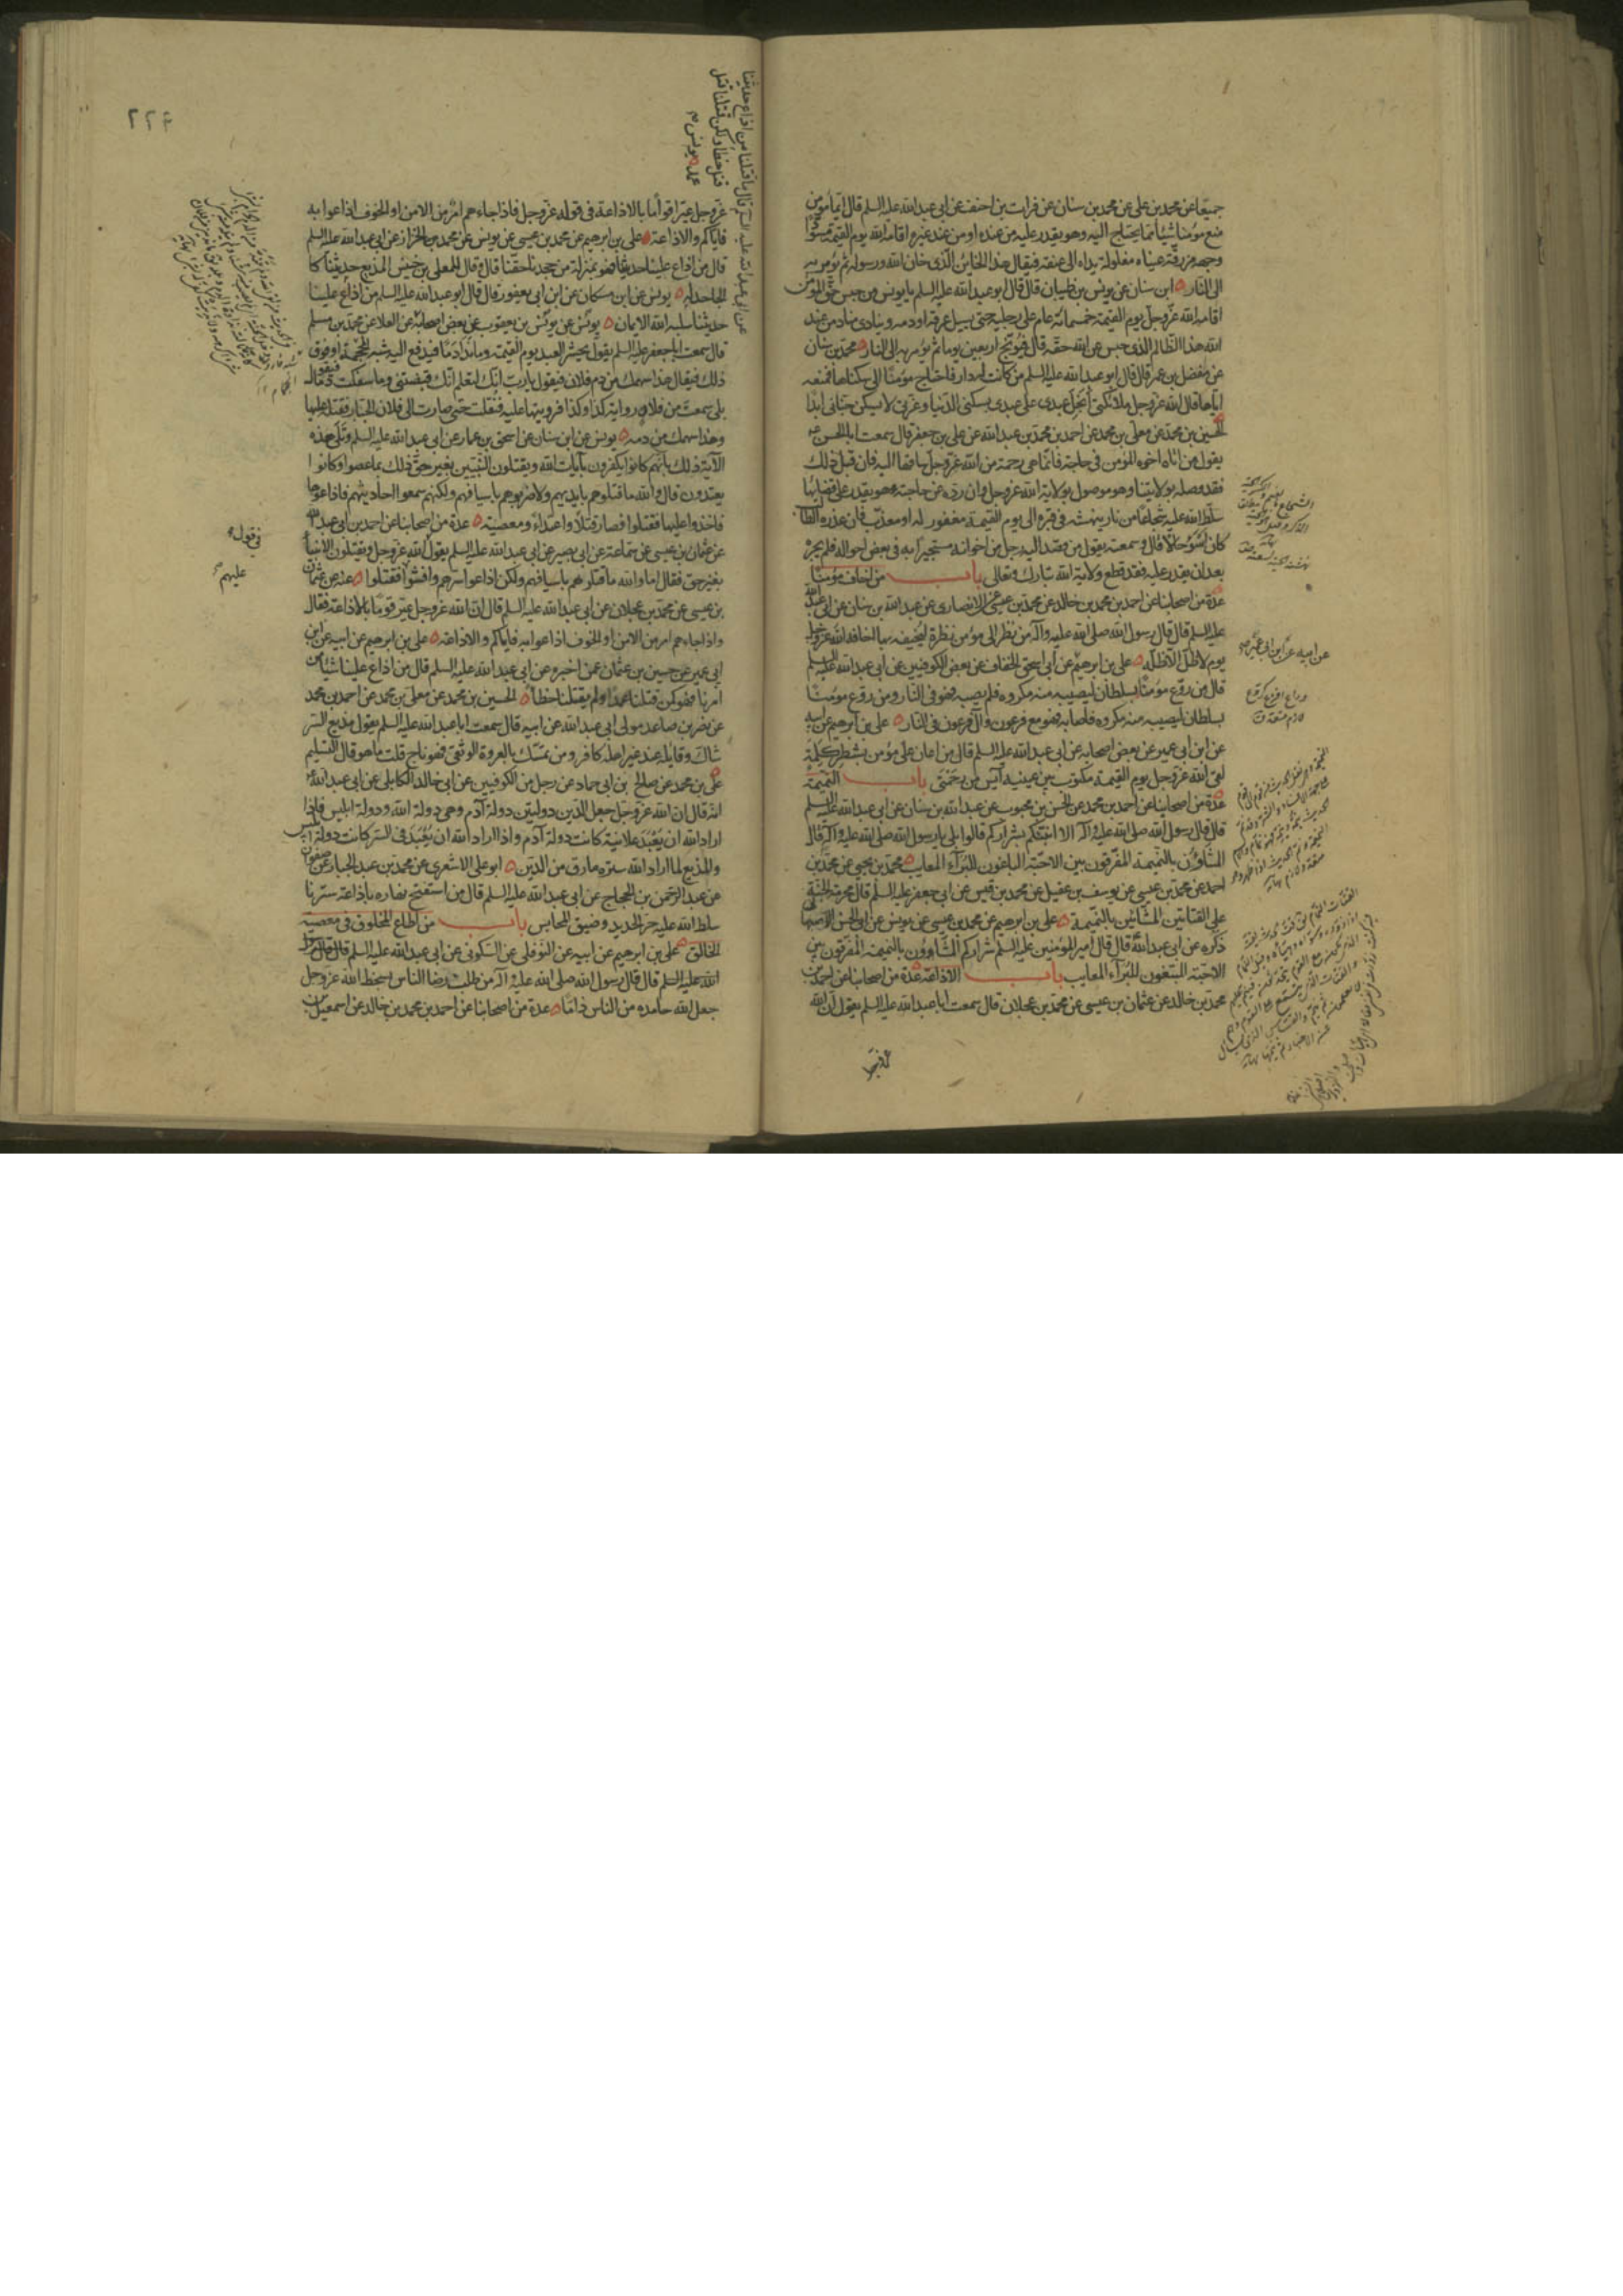 جميعا عن محمد بن علي عن محمد بن سنان عن فرات بن احنف عن ابي عبد الله عليه السلم قال ايما مؤمن
منع مؤمنا شيئا مما يحتاج اليه وهو يقدر عليه من عنده او من عند غيره اقامه الله يوم القيمة مسودا
وجهه مزرقة عيناه مغلولة يداه الى عنقه فيقال هذا الخاين الذي خان الله ورسوله ثم يؤمر به
الى النار ابن سنان عن يونس بن ظبيان قال قال ابو عبد الله عليه السلم يا يونس من حبس حق المؤمن
اقامه الله عز وجل يوم القيمة خمسمائة عام على رجليه حتى يسيل عرقه او دمه وينادي مناد من عند
الله هذا الظالم الذي حبس عن الله حقه قال فيوبخ اربعين يوما ثم يؤمر به الى النار محمد بن سنان
عن مفضل بن عمر قال قال ابو عبد الله عليه السلم من كانت له دار فاحتاج مؤمنا الى سكناها فمنعه
اياها قال الله عز وجل ملائكتي أبخل عبدي على عبدي بسكنى الدنيا وعزتي لا يسكن جناني ابدا
الحسين بن محمد عن معلى بن محمد عن احمد بن محمد بن عبد الله عن علي بن جعفر قال سمعت ابا الحسن
يقول من اتاه اخوه المؤمن في حاجة فانما هي رحمة من الله عز وجل ساقها اليه فان قبل ذلك
فقد وصله بولايتنا وهو موصول بولاية الله عز وجل وان رده عن حاجته وهو يقدر على قضائها
سلط الله عليه شجاعا من نار ينهشه في قبره الى يوم القيمة مغفور له او معذب فان عذره الطالب
كان اسوء حالا قال وسمعته يقول من قصد اليه رجل من اخوانه مستجيرا به في بعض احواله فلم يجره
بعد ان يقدر عليه فقد قطع ولاية الله تبارك وتعالى باب من اخاف مؤمنا
عدة من اصحابنا عن احمد بن محمد بن خالد عن محمد بن عيسى عن الانصاري عن عبد الله بن سنان عن ابي عبد الله
عليه السلم قال قال رسول الله صلى الله عليه وآله من نظر الى مؤمن نظرة ليخيفه بها اخافه الله عز وجل
يوم لا ظل الا ظله علي بن ابرهيم عن ابي اسحق الخفاف عن بعض الكوفيين عن ابي عبد الله عليه السلم
قال من روع مؤمنا بسلطان ليصيبه منه مكروه فلم يصبه فهو في النار ومن روع مومنا
بسلطان ليصيبه منه مكروه فاصابه فهو مع فرعون وآل فرعون في النار علي بن ابرهيم عن ابيه
عن ابن ابي عمير عن بعض اصحابه عن ابي عبد الله عليه السلم قال من اعان على مؤمن بشطر كلمة
لقي الله عز وجل يوم القيمة مكتوب بين عينيه آيس من رحمتي باب النميمة
عدة من اصحابنا عن احمد بن محمد عن الحسن بن محبوب عن عبد الله بن سنان عن ابي عبد الله عليه السلم
قال قال رسول الله صلى الله عليه وآله الا انبئكم بشراركم قالوا بلى يا رسول الله صلى الله عليه وآله قال
المشاؤن بالنميمة المفرقون بين الاحبة الباغون للبرآء المعايب محمد بن يحيى عن محمد بن
احمد عن محمد بن عيسى عن يوسف بن عقيل عن محمد بن قيس عن ابي جعفر عليه السلم قال محرمة الجنة
على القتاتين المشائين بالنميمة علي بن ابرهيم عن محمد بن عيسى عن يونس عن ابي الحسن الاصبهاني
ذكره عن ابي عبد الله قال قال امير المؤمنين عليه السلم شراركم المشاوون بالنميمة المفرقون بين
الاحبة المبتغون للبرآء المعايب باب الاذاعة عدة من اصحابنا عن احمد بن
محمد بن خالد عن عثمان بن عيسى عن محمد بن عجلان قال سمعت ابا عبد الله عليه السلم يقول ان الله
عن ابيه عن ابن ابي عمير
٢٢۴
عن ابي عبد الله عليه السلم قال ما قتلنا من اذاع حديثنا
قتل خطأ ولكن قتلنا قتل
عمد يونس
عز وجل عير اقواما بالاذاعة في قوله عز وجل فاذا جاءهم امر من الامن او الخوف اذاعوا به
فاياكم والاذاعة علي بن ابرهيم عن محمد بن عيسى عن يونس عن محمد بن الخزاز عن ابي عبد الله عليه السلم
قال من اذاع علينا حديثنا فهو بمنزلة من جحدنا حقنا قال وقال المعلى بن خنيس المذيع حديثنا كا
لجاحد له يونس عن ابن مسكان عن ابن ابي يعفور قال قال ابو عبد الله عليه السلم من اذاع علينا
حديثنا سلبه الله الايمان يونس عن يونس بن يعقوب عن بعض اصحابه عن العلا عن محمد بن مسلم
قال سمعت ابا جعفر عليه السلم يقول يحشر العبد يوم القيمة وما ندا دما فيدفع اليه شبه المحجمة او فوق
ذلك فيقال هذا سهمك من دم فلان فيقول يا رب انك لتعلم انك قبضتني وما سفكت دما قال
بلى سمعت من فلان رواية كذا وكذا فرويتها عليه فنقلت حتى صارت الى فلان الجبار فقتله عليها
وهذا سهمك من دمه يونس عن ابن سنان عن اسحق بن عمار عن ابي عبد الله عليه السلم وتلى هذه
الآية ذلك بانهم كانوا يكفرون بآيات الله ويقتلون النبيين بغير حق ذلك بما عصوا وكانوا
يعتدون قال والله ما قتلوهم بايديهم ولا ضربوهم باسيافهم ولكنهم سمعوا احاديثهم فاذاعوها
فاخذوا عليها فقتلوا فصار قتلا واعتداء ومعصية عدة من اصحابنا عن احمد بن ابي عبد الله
عن عثمان بن عيسى عن سماعة عن ابي بصير عن ابي عبد الله عليه السلم يقول الله عز وجل ويقتلون الانبياء
بغير حق فقال اما والله ما قتلوهم باسيافهم ولكن اذاعوا سرهم وافشوا فقتلوا عنه عن عثمان
بن عيسى عن محمد بن عجلان عن ابي عبد الله عليه السلم قال ان الله عز وجل عير قوما بالاذاعة فقال
واذا جاءهم امر من الامن او الخوف اذاعوا به فاياكم والاذاعة علي بن ابرهيم عن ابيه عن ابن
ابي عمير عن حسين بن عثمان عمن اخبره عن ابي عبد الله عليه السلم قال من اذاع علينا شيئا من
امرنا فهو كمن قتلنا عمدا ولم يقتلنا خطأ الحسين بن محمد عن معلى بن محمد عن احمد بن محمد
عن نضر بن صاعد مولى ابي عبد الله عن ابيه قال سمعت ابا عبد الله عليه السلم يقول مذيع السر
شاك وقايله عند غير اهله كافر ومن تمسك بالعروة الوثقى فهو ناج قلت ما هو قال التسليم
علي بن محمد عن صالح بن ابي حماد عن رجل من الكوفيين عن ابي خالد الكابلي عن ابي عبد الله
انه قال ان الله عز وجل جعل الدين دولتين دولة آدم وهي دولة الله ودولة ابليس فاذا
اراد الله ان يعبد علانية كانت دولة آدم واذا اراد الله ان يعبد في السر كانت دولة ابليس
والمذيع لما اراد الله ستره مارق من الدين ابو علي الاشعري عن محمد بن عبد الجبار عن صفوان
عن عبد الرحمن بن الحجاج عن ابي عبد الله عليه السلم قال من استفتح نهاره باذاعة سرنا
سلط الله عليه حر الحديد وضيق المحابس باب من اطاع المخلوق في معصية
الخالق علي بن ابرهيم عن ابيه عن النوفلي عن السكوني عن ابي عبد الله عليه السلم قال قال رسول
الله عليه السلم قال قال رسول الله صلى الله عليه وآله من طلب رضا الناس بسخط الله عز وجل
جعل الله حامده من الناس ذاما عدة من اصحابنا عن احمد بن محمد بن خالد عن اسمعيل بن
في قول
عليهم